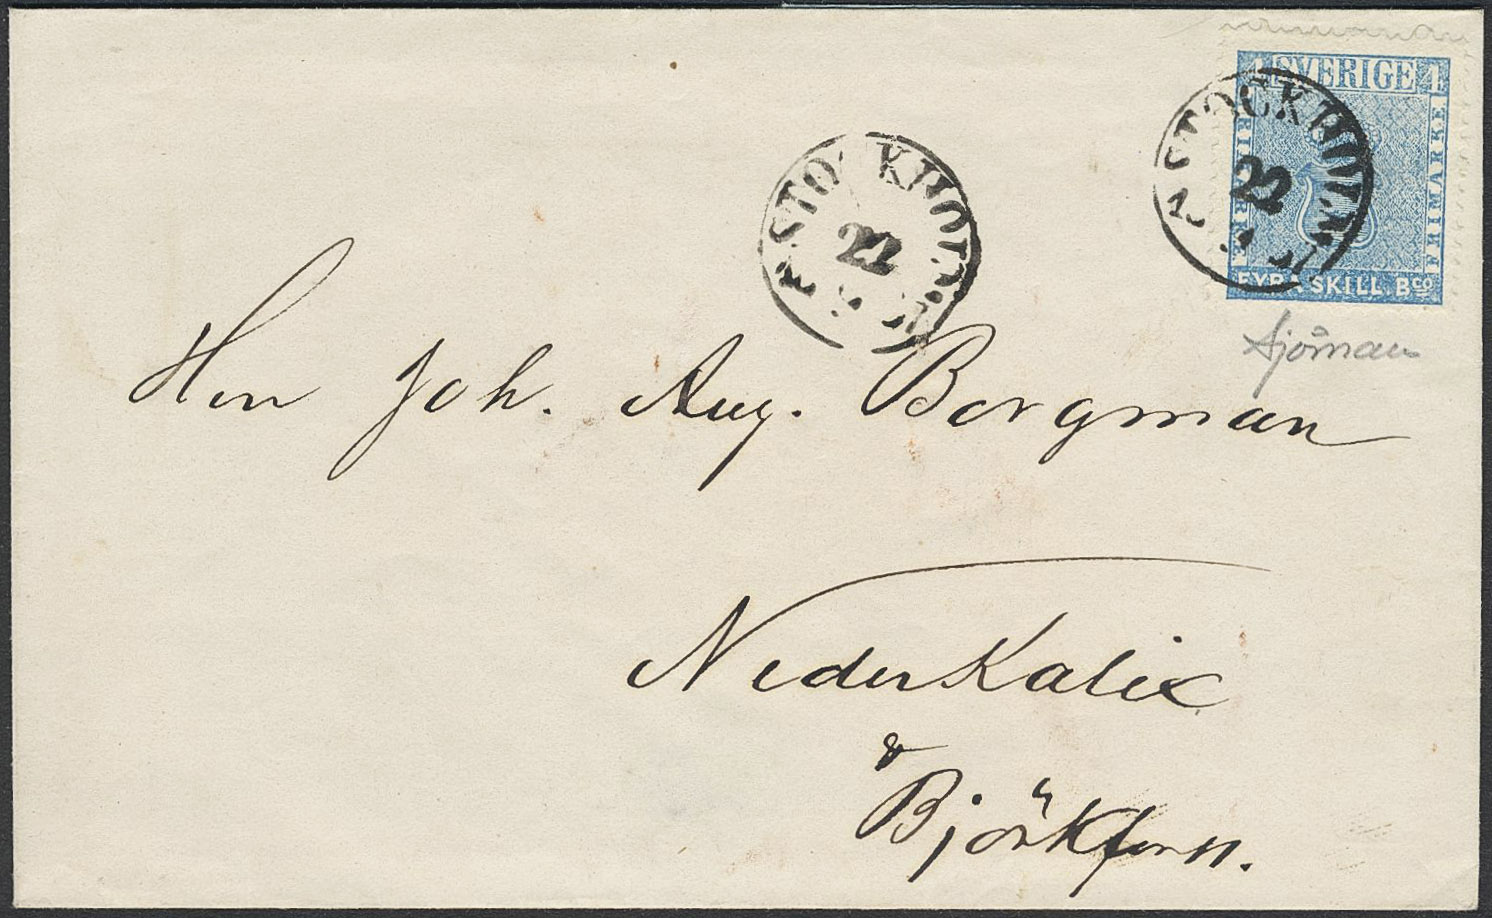 4 SVERIGE 4
FRIMÄRKE
FYRA SKILL. Bco
STOCKHOLM
22
STOCKHOLM
22
Sjöman
Herr Joh. Aug. Bergman
Neder Kalix
&
Björkforss.